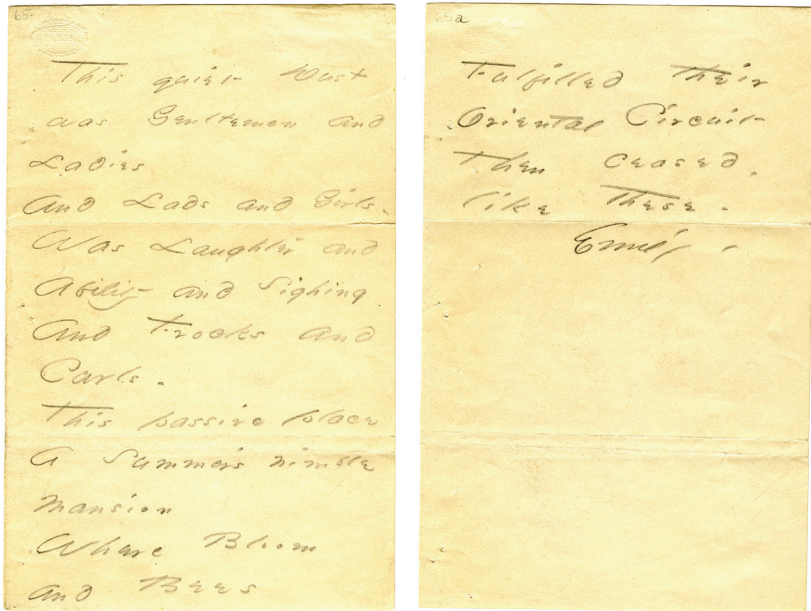 65
This quiet Dust
was Gentlemen and
Ladies
And Lads and Girls -
Was Laughter and
Ability and Sighing
And Frocks and
Curls -
This passive place
A Summer's nimble
mansion
Where Bloom
and Bees
65a
Fulfilled their
Oriental Circuit -
Then ceased,
like these -
Emily -